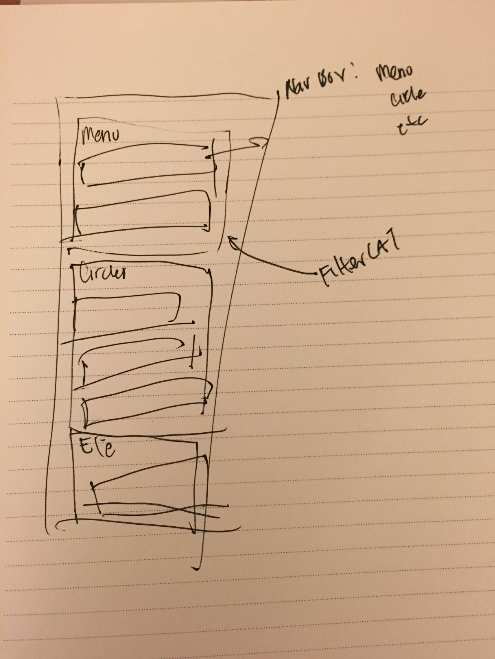 Nav Bar: Menu
Circle
etc
Menu
Filter CAT
Circles
Etc